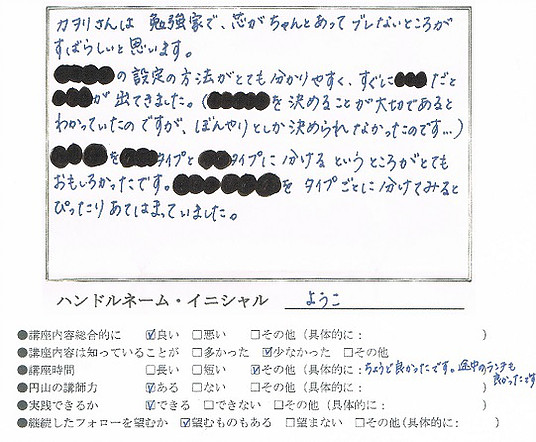 カヲリさんは 勉強家で、芯がちゃんとあって ブレないところが
すばらしいと思います。
の設定の方法がとても分かりやすく、すぐに だと
が出てきました。( を決めることが大切であると
わかっていたのですが、ぼんやりとしか決められなかったのです…)
を タイプと タイプに分けるというところがとても
おもしろかったです。 をタイプごとに分けてみると
ぴったりあてはまっていました。
ハンドルネーム・イニシャル ようこ
●講座内容総合的に ☑良い □悪い □その他(具体的に: )
●講座内容は知っていることが □多かった ☑少なかった □その他
●講座時間 □長い □短い ☑その他(具体的に:ちょうど良かったです。途中のランチも
良かったです
●円山の講師力 ☑ある □ない □その他(具体的に: )
●実践できるか ☑できる □できない □その他(具体的に: )
●継続したフォローを望むか ☑望むものもある □望まない □その他(具体的に: )